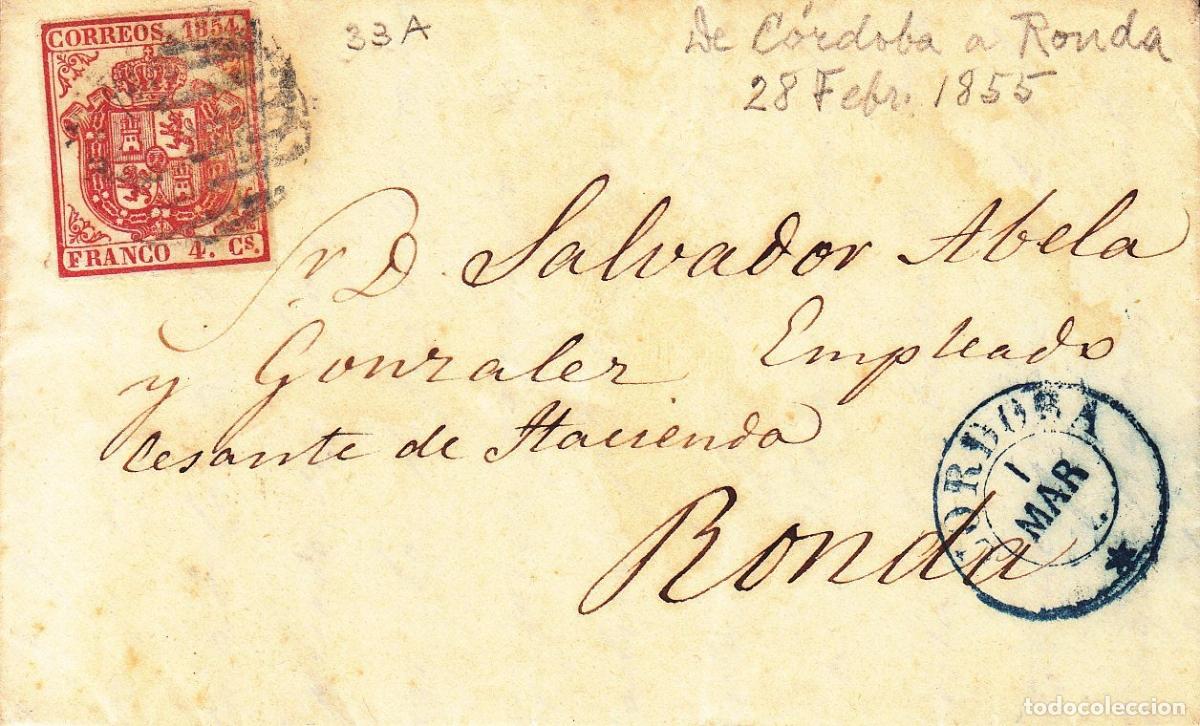 CORREOS. 1854.
FRANCO 4. Cs.
33A
De Córdoba a Ronda
28 Febr. 1855
Sr. D. Salvador Abela
y Gonzalez Empleado
Cesante de Hacienda
Ronda
CORDOBA
1
MAR
todocoleccion